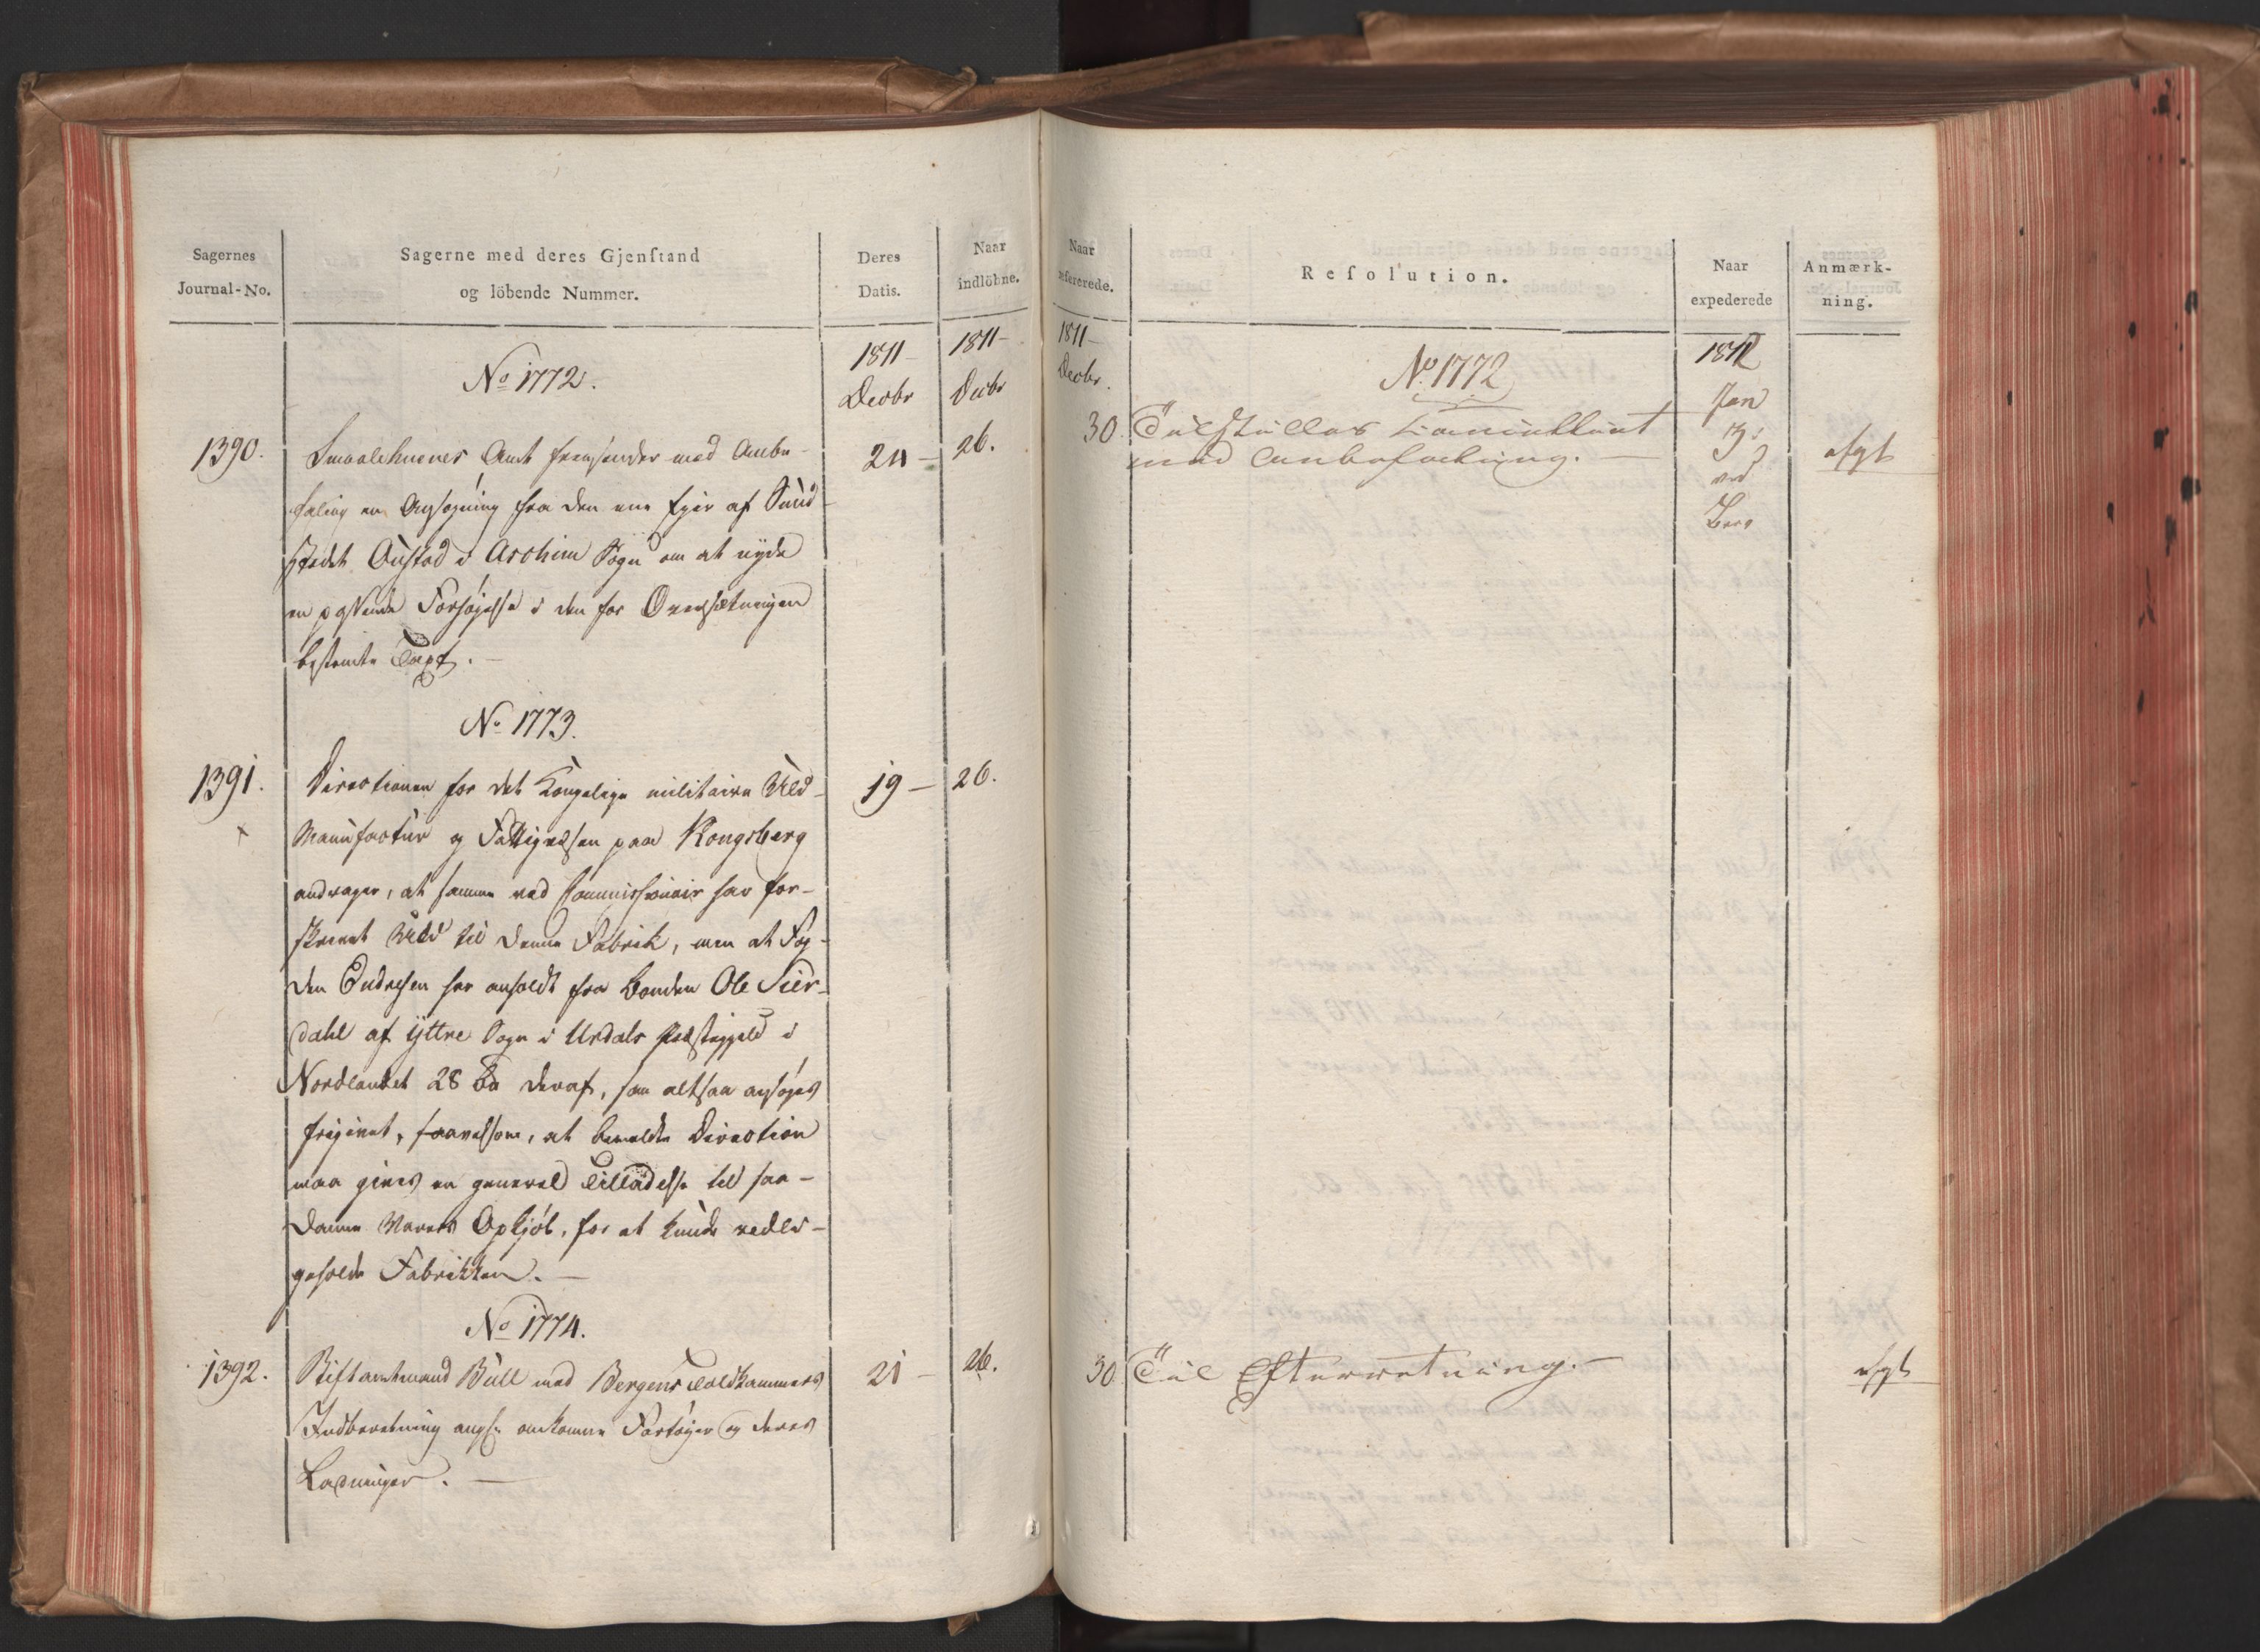 Sagernes
Journal-No.
Sagerne med deres Gjenstand
og löbende Nummer.
Deres
Datis.
Naar
indlöbne.
1811
Decbr
1811
Decbr
No 1772.
1390.
Smaalehnenes Amt fremsender med Anbe-
faling en Ansøgning fra den ene Ejer af Sund-
stedet Onstad i Aschim Sogn om at nyde
en passende Forhøjelse i den for Oversætningen
bestemte Taxt. —
24 —
26.
No 1773.
1391.
×
Directionen for det Kongelige militaire Uld-
Manufactur og Fattigvæsen paa Kongsberg
andrager, at samme ved Commissionair har for-
skrevet Uld til denne Fabrik, men at Fog-
den Endresen har anholdt fra Bonden Ole Sier-
dahl af Yttre Sogn i Urdals Præstegjeld i
Nordlandet 28 deraf, som altsaa ansøges
frigivet, saavelsom, at bemeldte Direction
maa gives en general Tilladelse til saa-
danne Varers Opkjøb, for at kunde vedli-
geholde Fabrikken. —
19 —
26.
No 1774.
1392.
Stiftamtmand Bull med Bergens Toldkammers
Indberetning angl. ankomne Fartøjer og deres
Ladninger. —
21 —
26.
Naar
refererede.
Resolution.
Naar
expederede
Anmærk-
ning.
1811
Decbr.
No 1772
1812
Jan
30.
Tilstilles Committeret
med Anbefaling. —
ved
Berg
afgl
30.
Til Efterretning. —
afgl